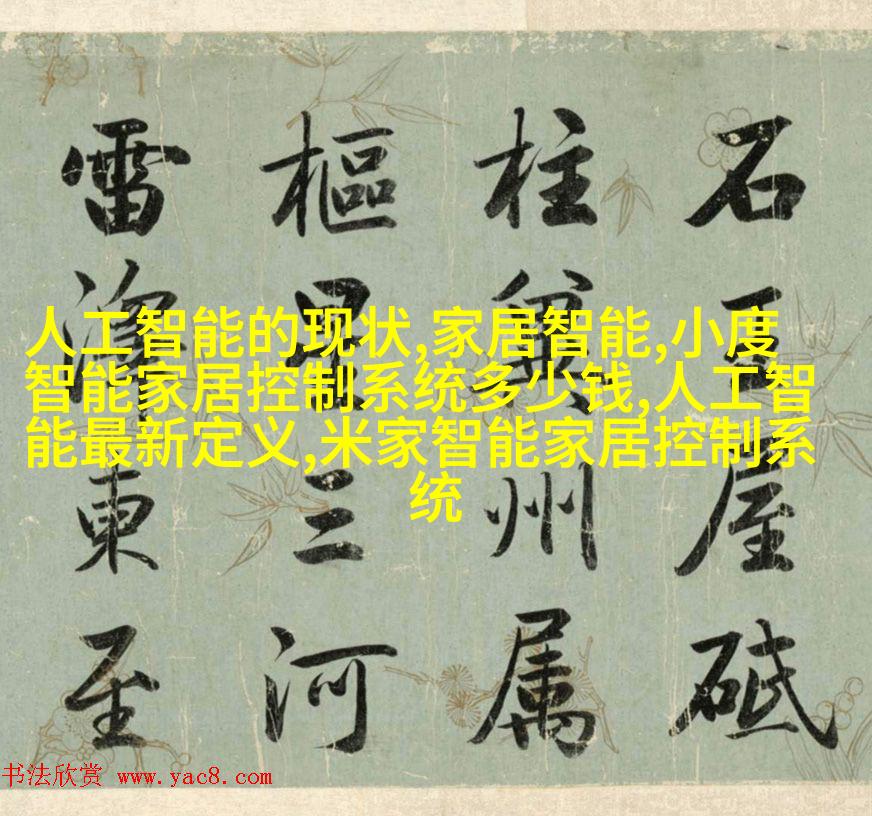 石王屋砥
柱冀州属
樞三河
雷澤東至
人工智能的现状,家居智能,小度
智能家居控制系统多少钱,人工智
能最新定义,米家智能家居控制系
统
书法欣赏 www.yac8.com